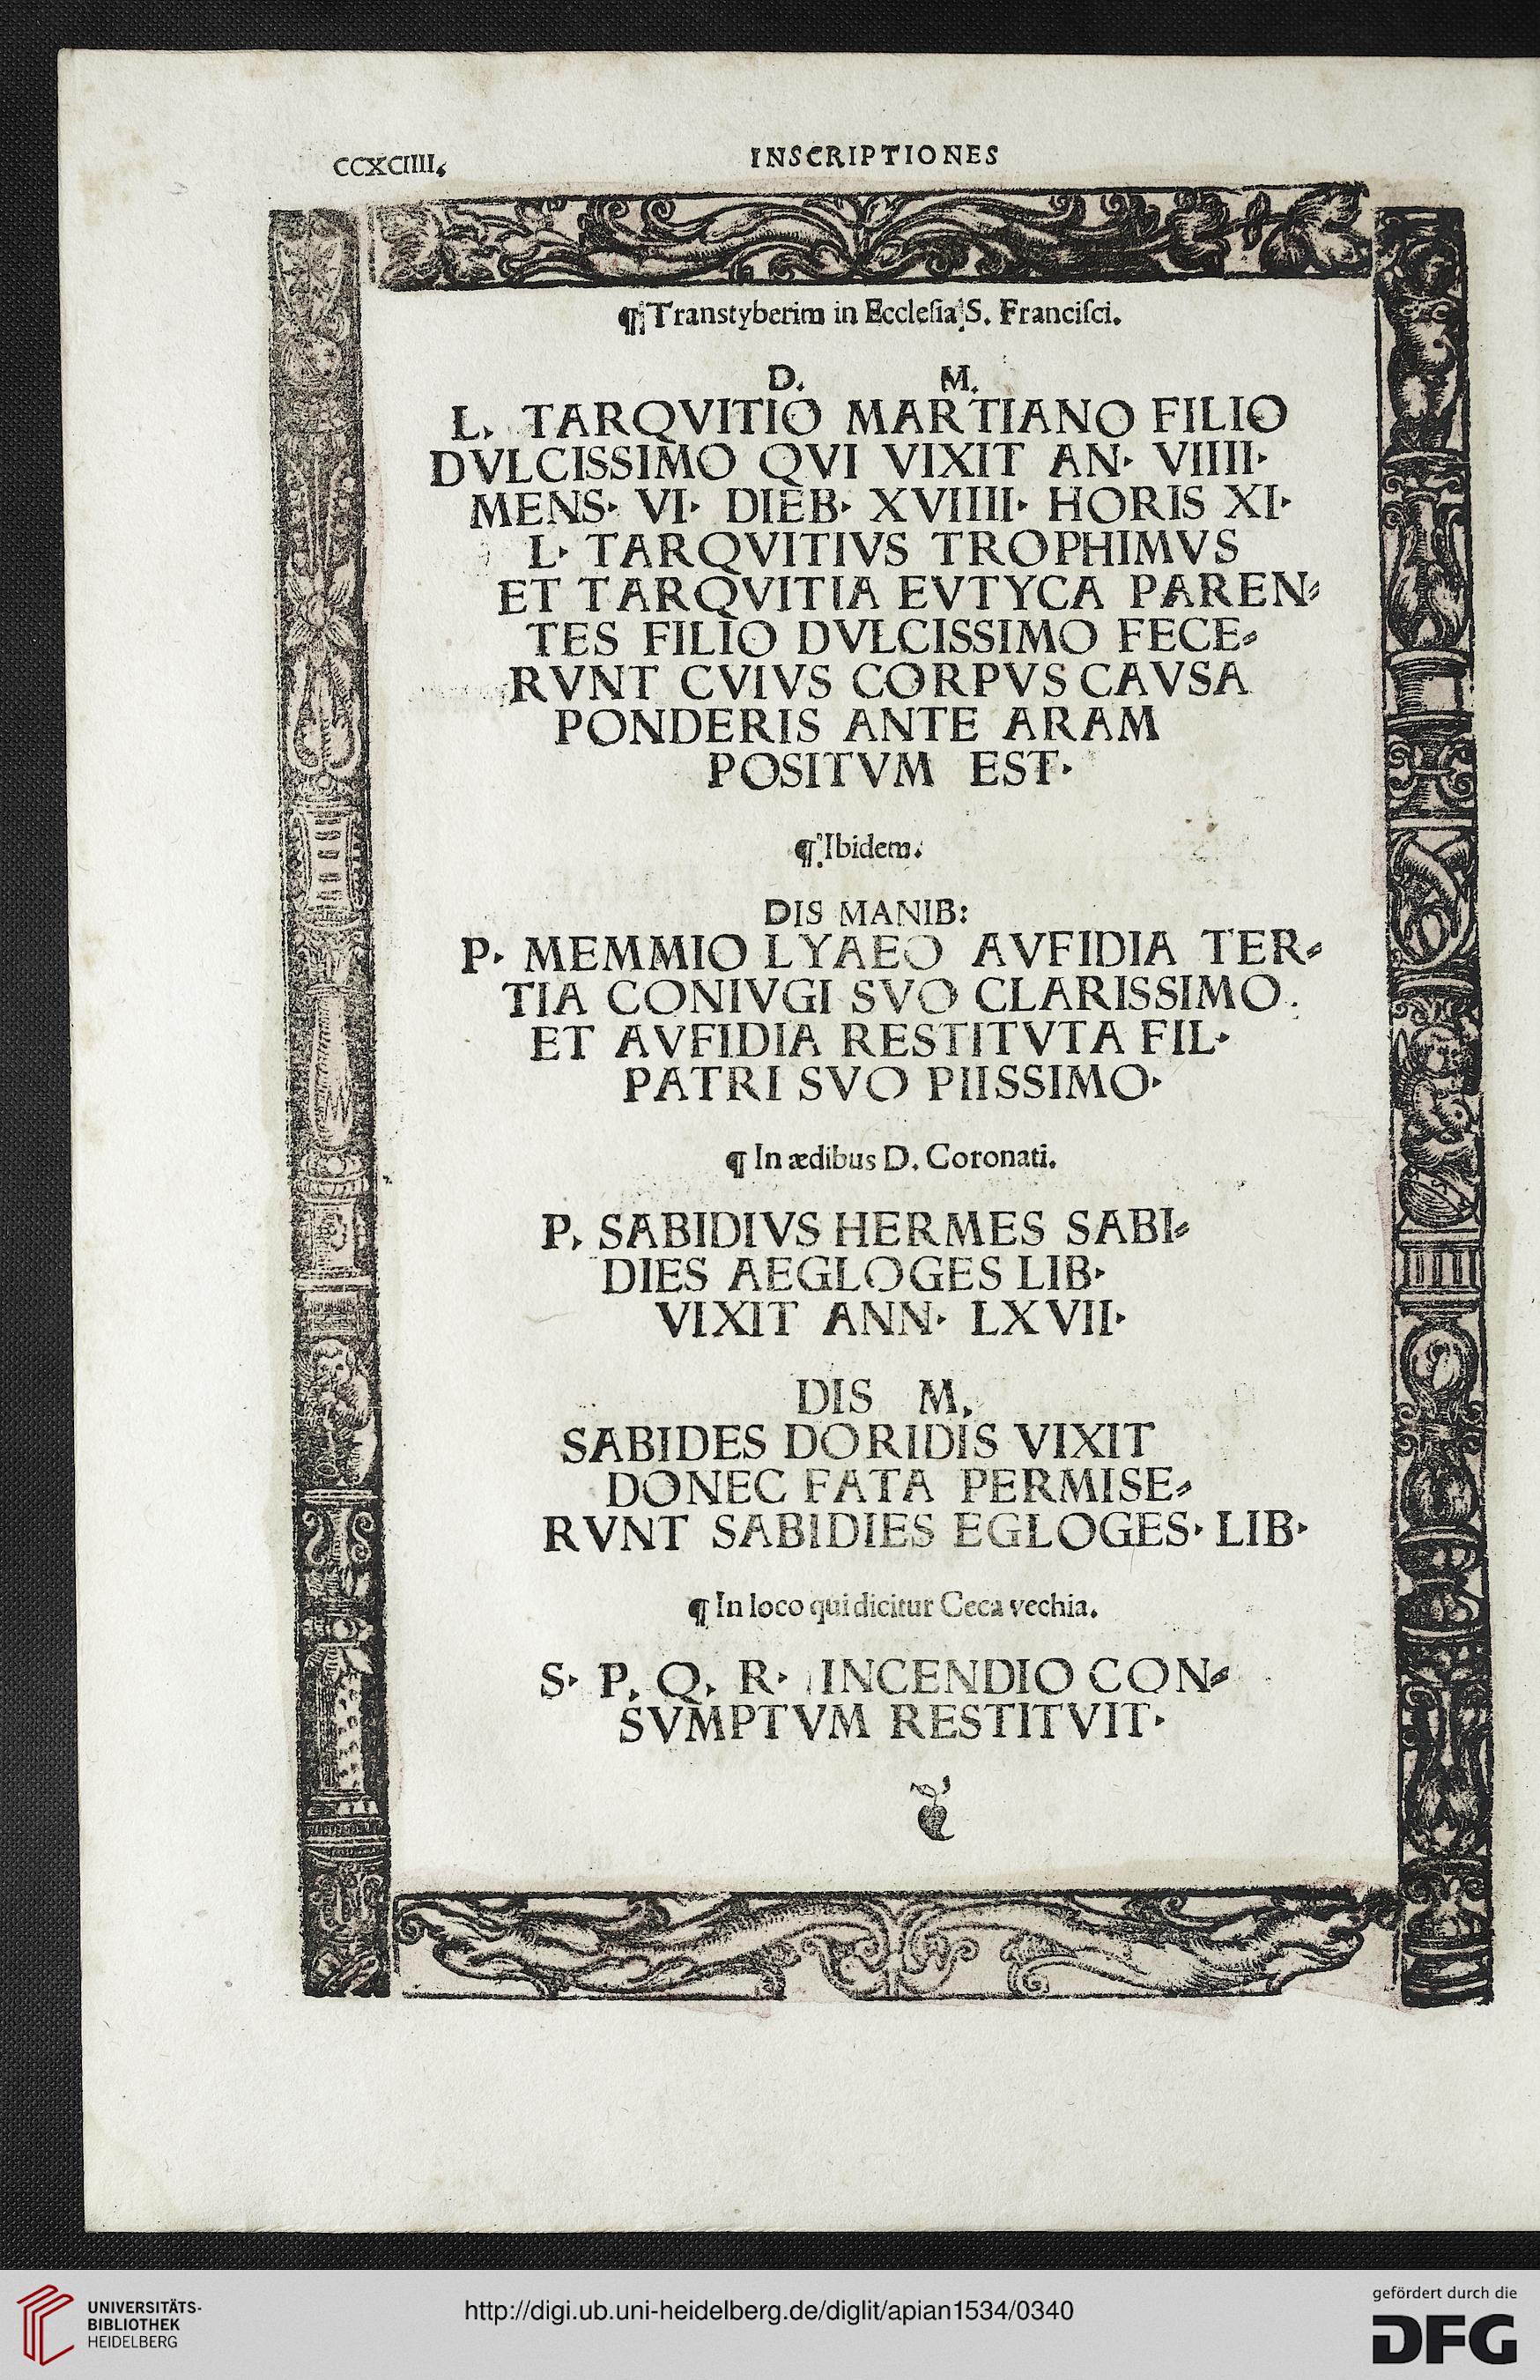 CCXCIIII.
INSCRIPTIONES
¶ Transtyberim in Eccleſia S. Franciſci.
D. M.
L. TARQVITIO MARTIANO FILIO
DVLCISSIMO QVI VIXIT AN· VIIII·
MENS· VI· DIEB· XVIIII· HORIS XI·
L· TARQVITIVS TROPHIMVS
ET TARQVITIA EVTYCA PAREN⸗
TES FILIO DVLCISSIMO FECE⸗
RVNT CVIVS CORPVS CAVSA
PONDERIS ANTE ARAM
POSITVM EST·
¶ Ibidem.
DIS MANIB:
P· MEMMIO LYAEO AVFIDIA TER⸗
TIA CONIVGI SVO CLARISSIMO.
ET AVFIDIA RESTITVTA FIL·
PATRI SVO PIISSIMO·
¶ In ædibus D. Coronati.
P. SABIDIVS HERMES SABI⸗
DIES AEGLOGES LIB·
VIXIT ANN· LXVII·
DIS M.
SABIDES DORIDIS VIXIT
DONEC FATA PERMISE⸗
RVNT SABIDIES EGLOGES· LIB·
¶ In loco qui dicitur Ceca vechia.
S· P. Q. R· INCENDIO CON⸗
SVMPTVM RESTITVIT·
UNIVERSITÄTS-
BIBLIOTHEK
HEIDELBERG
http://digi.ub.uni-heidelberg.de/diglit/apian1534/0340
gefördert durch die
DFG